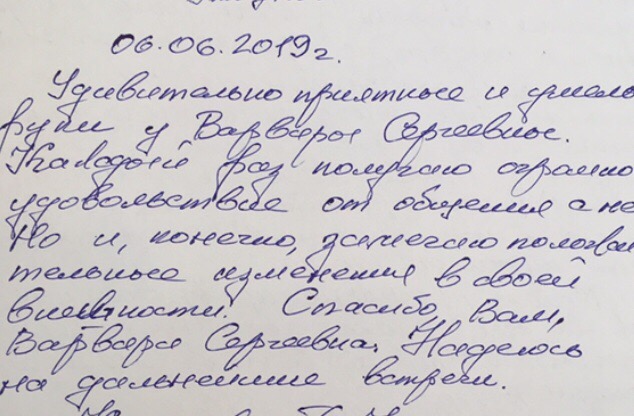 06.06.2019г.
Удивительно приятные и умелы
руки у Варвары Сергеевны.
Каждый раз получаю огромно
удовольствие от общения с не
Но и, конечно, замечаю положи
тельные изменения в своей
внешности. Спасибо Вам,
Варвара Сергеевна. Надеюсь
на дальнейшие встречи.